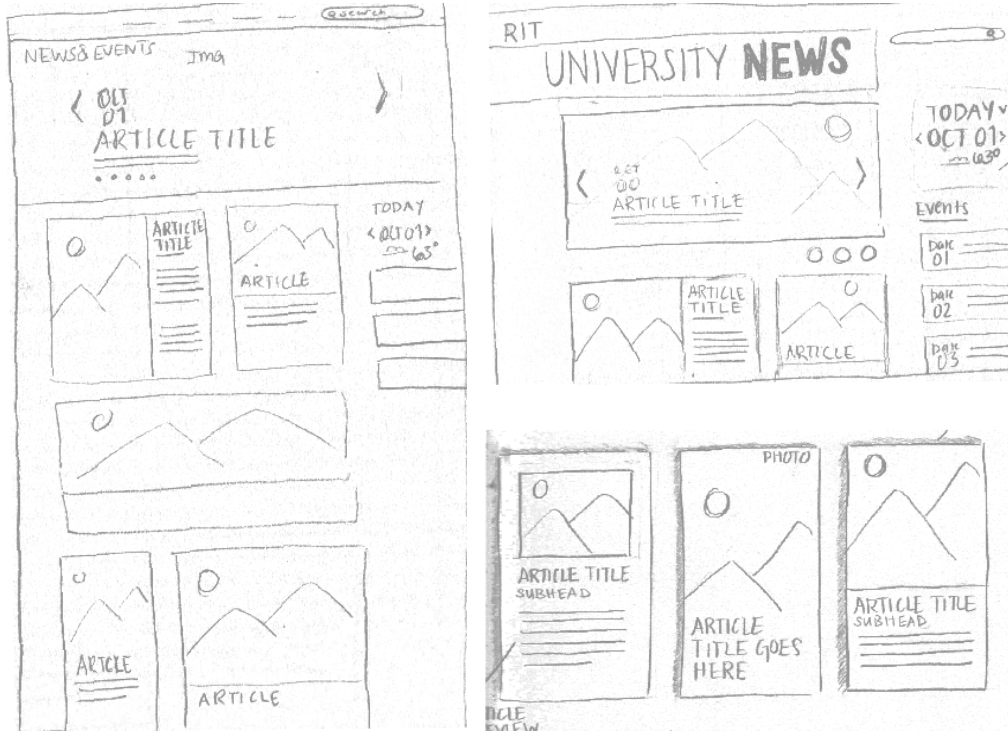 search
NEWS & EVENTS
Img
<
>
OCT
01
ARTICLE TITLE
ARTICLE
TITLE
ARTICLE
TODAY
< OCT 01 >
63°
ARTICLE
ARTICLE
RIT
UNIVERSITY NEWS
TODAY
< OCT 01 >
63°
<
>
OCT
00
ARTICLE TITLE
Events
Date
01
Date
02
Date
03
ARTICLE
TITLE
ARTICLE
ARTICLE TITLE
SUBHEAD
PHOTO
ARTICLE
TITLE GOES
HERE
ARTICLE TITLE
SUBHEAD